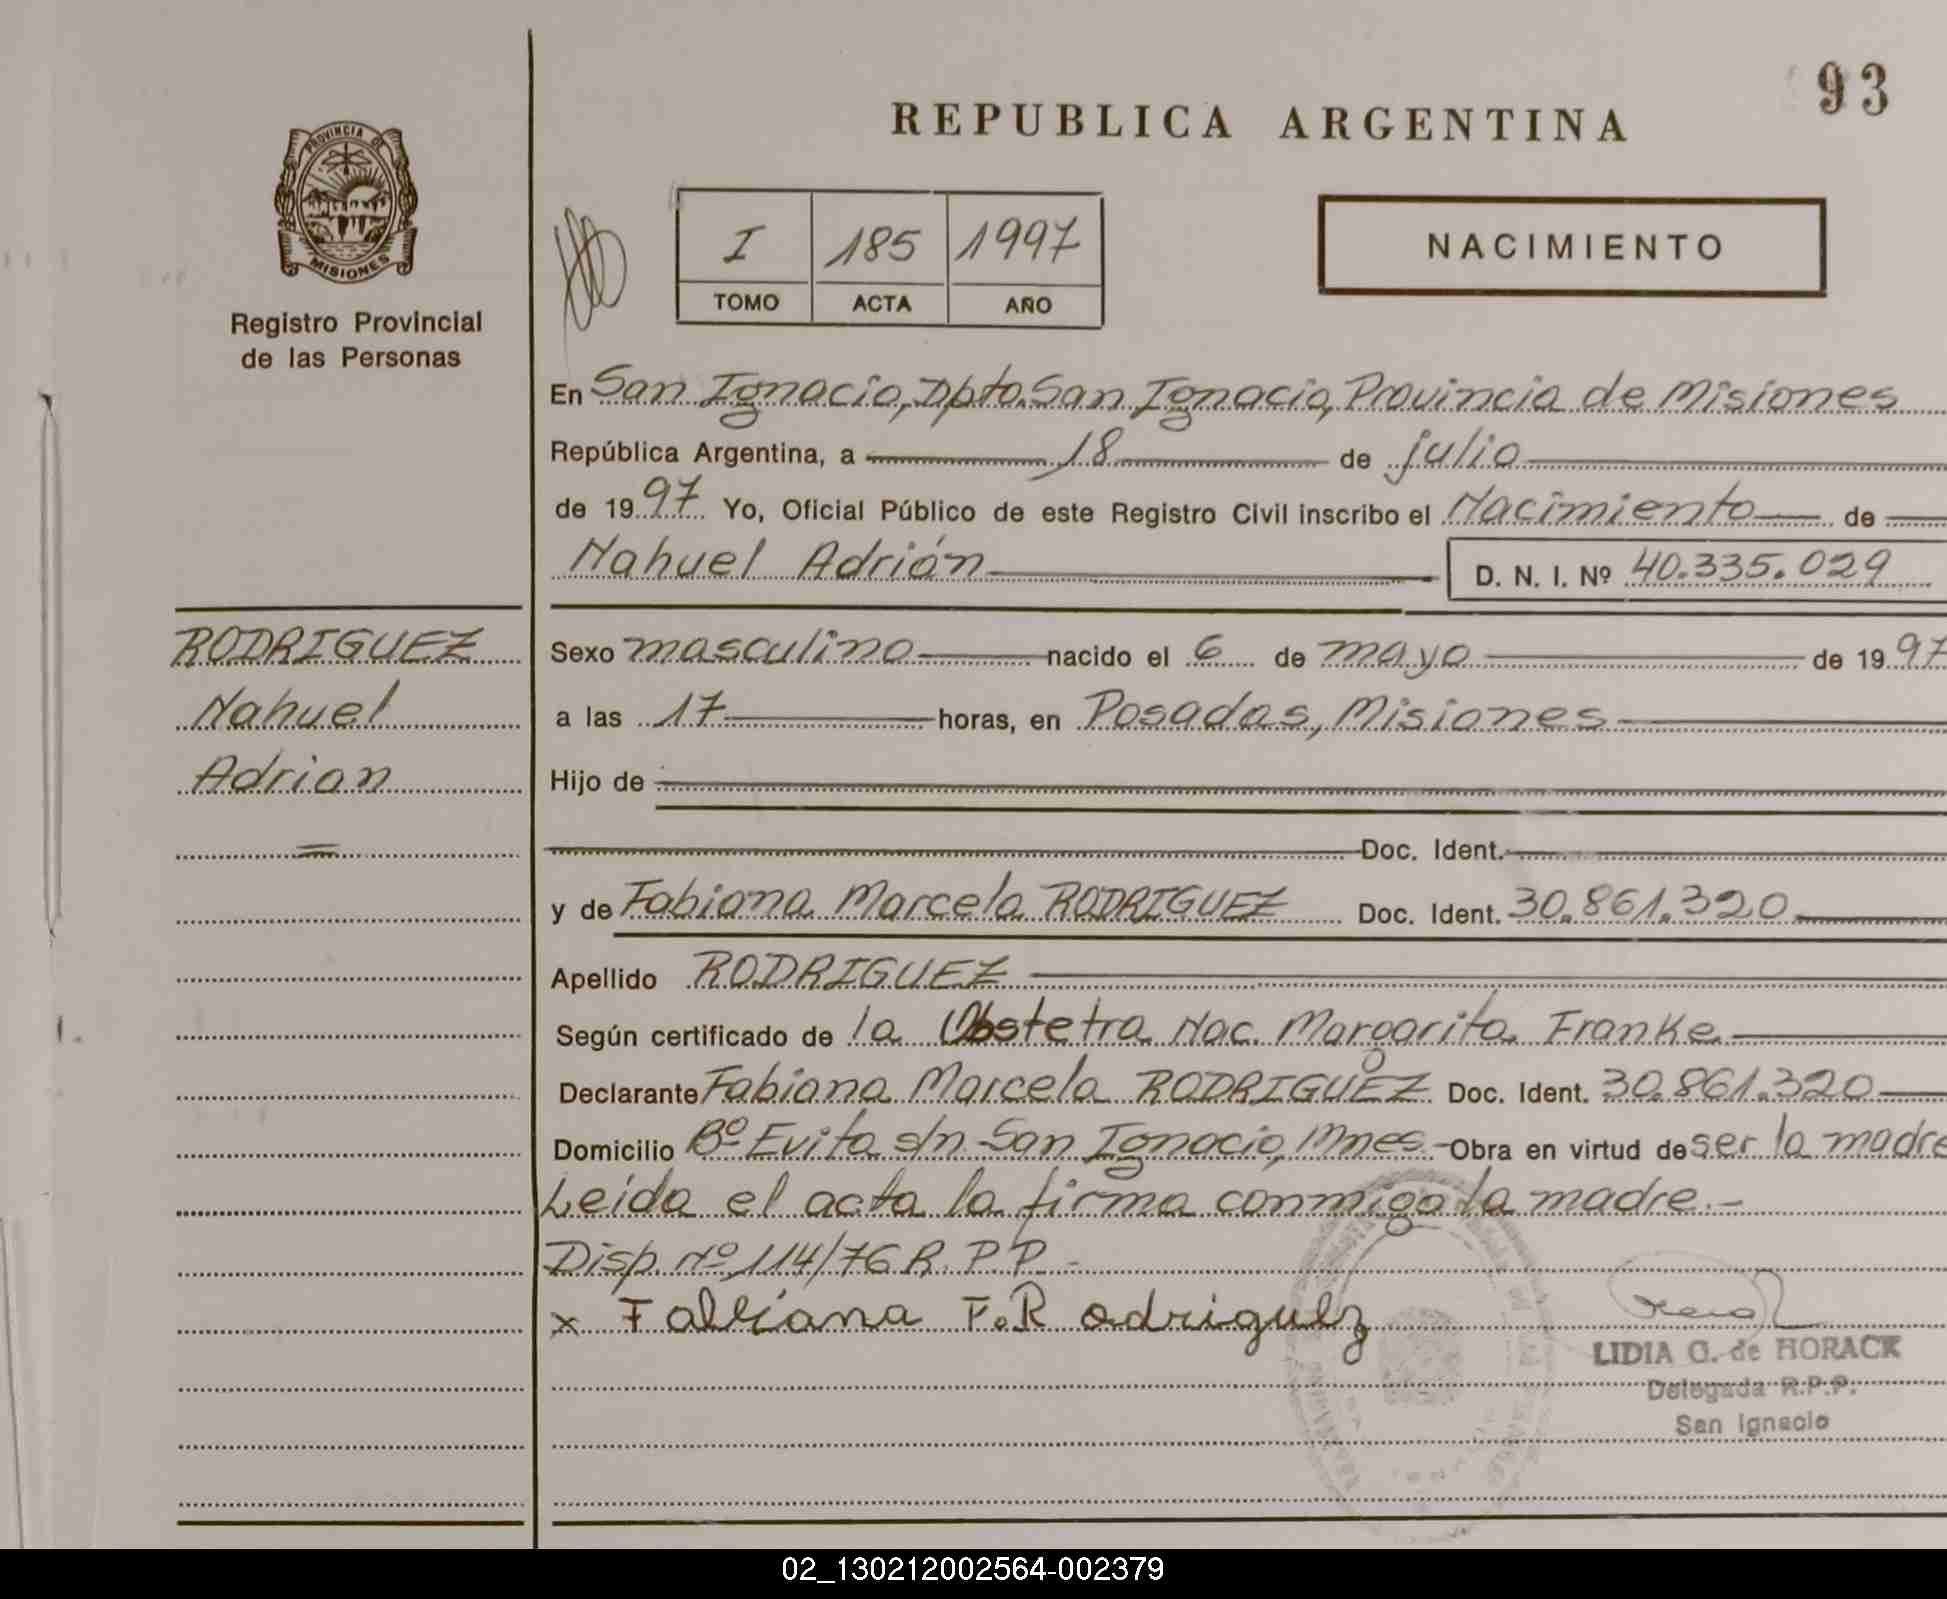 93
REPUBLICA ARGENTINA
PROVINCIA DE
MISIONES
Registro Provincial
de las Personas
I 185 1997
TOMO ACTA AÑO
NACIMIENTO
En San Ignacio, Dpto. San Ignacio, Provincia de Misiones
República Argentina, a 18 de julio
de 1997 Yo, Oficial Público de este Registro Civil inscribo el Nacimiento de
Nahuel Adrián D. N. I. Nº 40.335.029
RODRIGUEZ
Nahuel
Adrian
Sexo masculino nacido el 6 de mayo de 1997
a las 17 horas, en Posadas, Misiones
Hijo de
Doc. Ident.
y de Fabiana Marcela RODRIGUEZ Doc. Ident. 30.861.320
Apellido RODRIGUEZ
Según certificado de la Obstetra Nac. Margarita Franke
Declarante Fabiana Marcela RODRIGUEZ Doc. Ident. 30.861.320
Domicilio Bº Evita s/n San Ignacio, Mnes.- Obra en virtud de ser la madre
Leída el acta la firma conmigo la madre.-
Disp. Nº 114/76 R.P.P.-
x Fabiana F. Rodriguez
LIDIA G. de HORACK
Delegada R.P.P.
San Ignacio
02_130212002564-002379